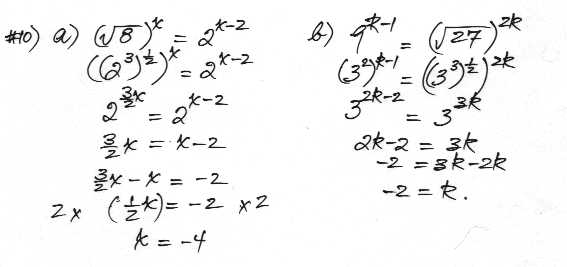 #10) a) (√8)^x = 2^(x-2)
((2^3)^(1/2))^x = 2^(x-2)
2^(3/2 x) = 2^(x-2)
3/2 x = x-2
3/2 x - x = -2
2 x (1/2 x) = -2 x 2
x = -4
b) 9^(k-1) = (√27)^(2k)
(3^2)^(k-1) = ((3^3)^(1/2))^(2k)
3^(2k-2) = 3^(3k)
2k-2 = 3k
-2 = 3k-2k
-2 = k.